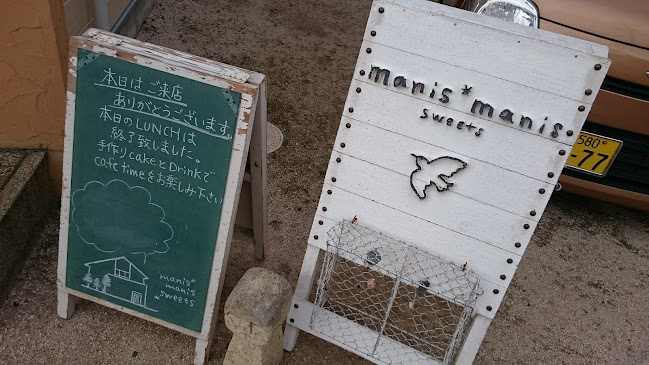 本日はご来店
ありがとうございます。
本日のLUNCHは
終了致しました。
手作りcakeとDrinkで
cafe timeをお楽しみ下さい
manis*
manis
sweets
manis*manis
sweets
580
-77